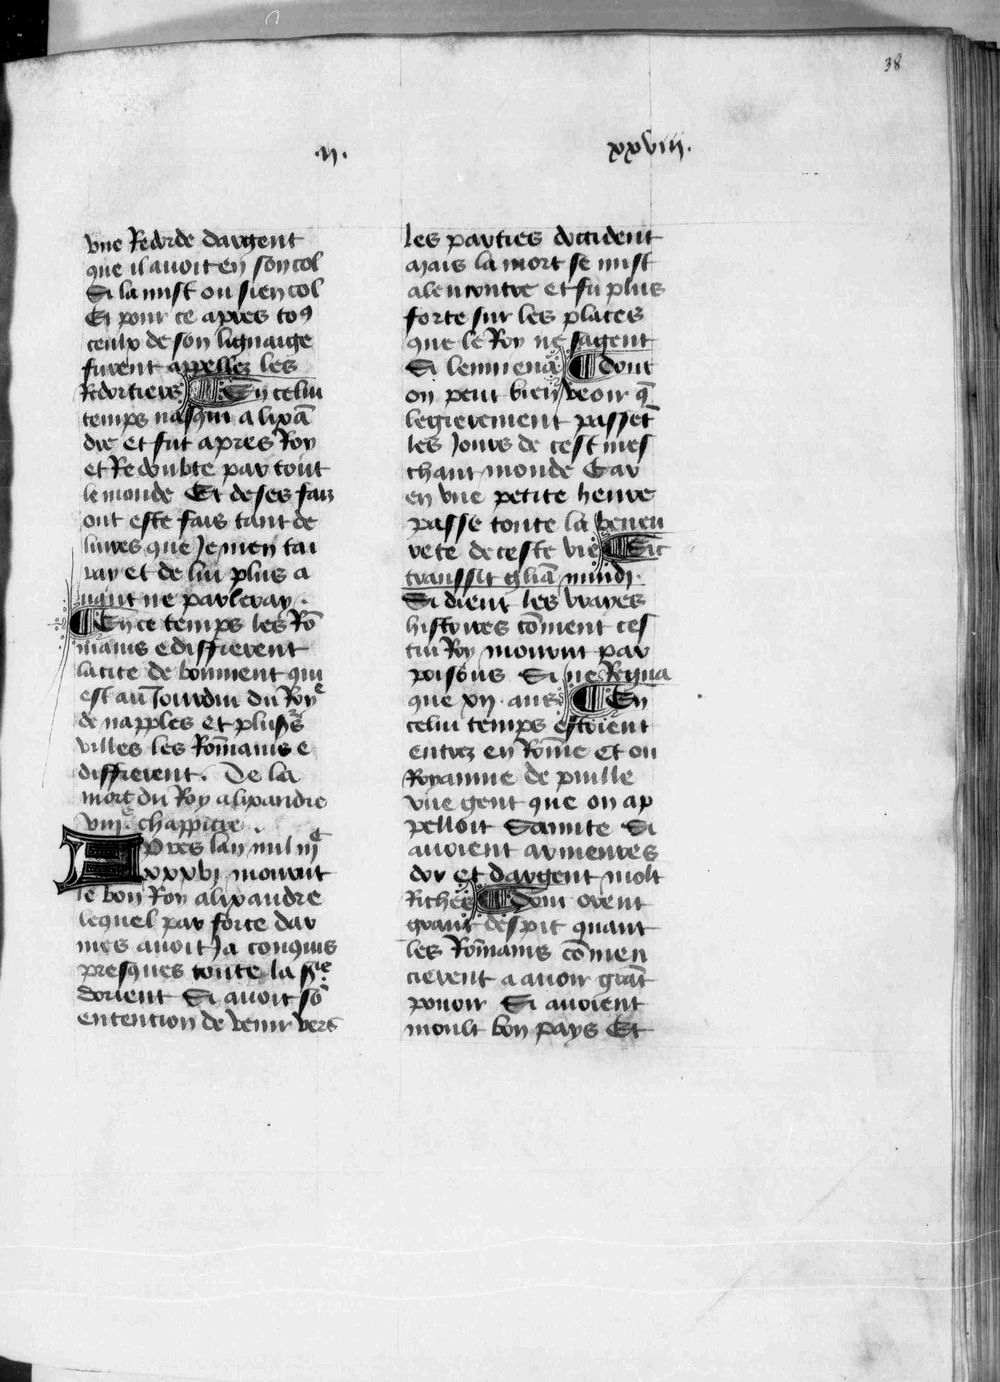 38
.ij.
xxviij.
vne Redorde dargent
que il auoit en son col
Si la mist ou sien col
Et pour ce apres toꝯ
ceulx de son lignaige
furent appellez les
Redortiers ¶ En celui
temps nasqui alixā
dre et fut apres Roy
et Redoubte par tout
le monde Et de ses faiz
ont este fais tant de
liures que Je men tai
ray et de lui plus a
uant ne parleray .
¶ En ce temps les Rō
mains edifierent
la cite de bonment qui
est au Jourdui du Roye
de napples et plusrs
villes les Rōmains e
diffierent. De la
mort du Roy alixandre
viije chappitre .
Apres lan mil iijC
xxxvj mourut
le bon Roy alixandre
lequel par force dar
mes auoit Ja conquis
presques toute la ptie
dorient Si auoit sō
entention de venir vers
les parties doccident
Mais la mort se mist
alencontre et fu plus
forte sur les places
que le Roy ne sa gent
Si lenmena ¶ dont
on peut bien veoir q̄
legierement passēt
les Jours de cest mes
chant monde Car
en vne petite heure
passe toute la beneu
rete de ceste vie ¶ Sic
transsit gliā mundi.
Si dient les vrayes
histoires cōment ces
tui Roy mourut par
poisons Si ne Regna
que xij. ans ¶ En
celui temps estoient
entrez en Rōme et ou
Royaume de puille
vne gent que on ap
pelloit Samite Si
auoient armeures
dor et dargent molt
Riches ¶ Dont orent
grant despit quant
les Rōmains cōmen
cierent a auoir grāt
pouoir Si auoient
moult bon pays Et